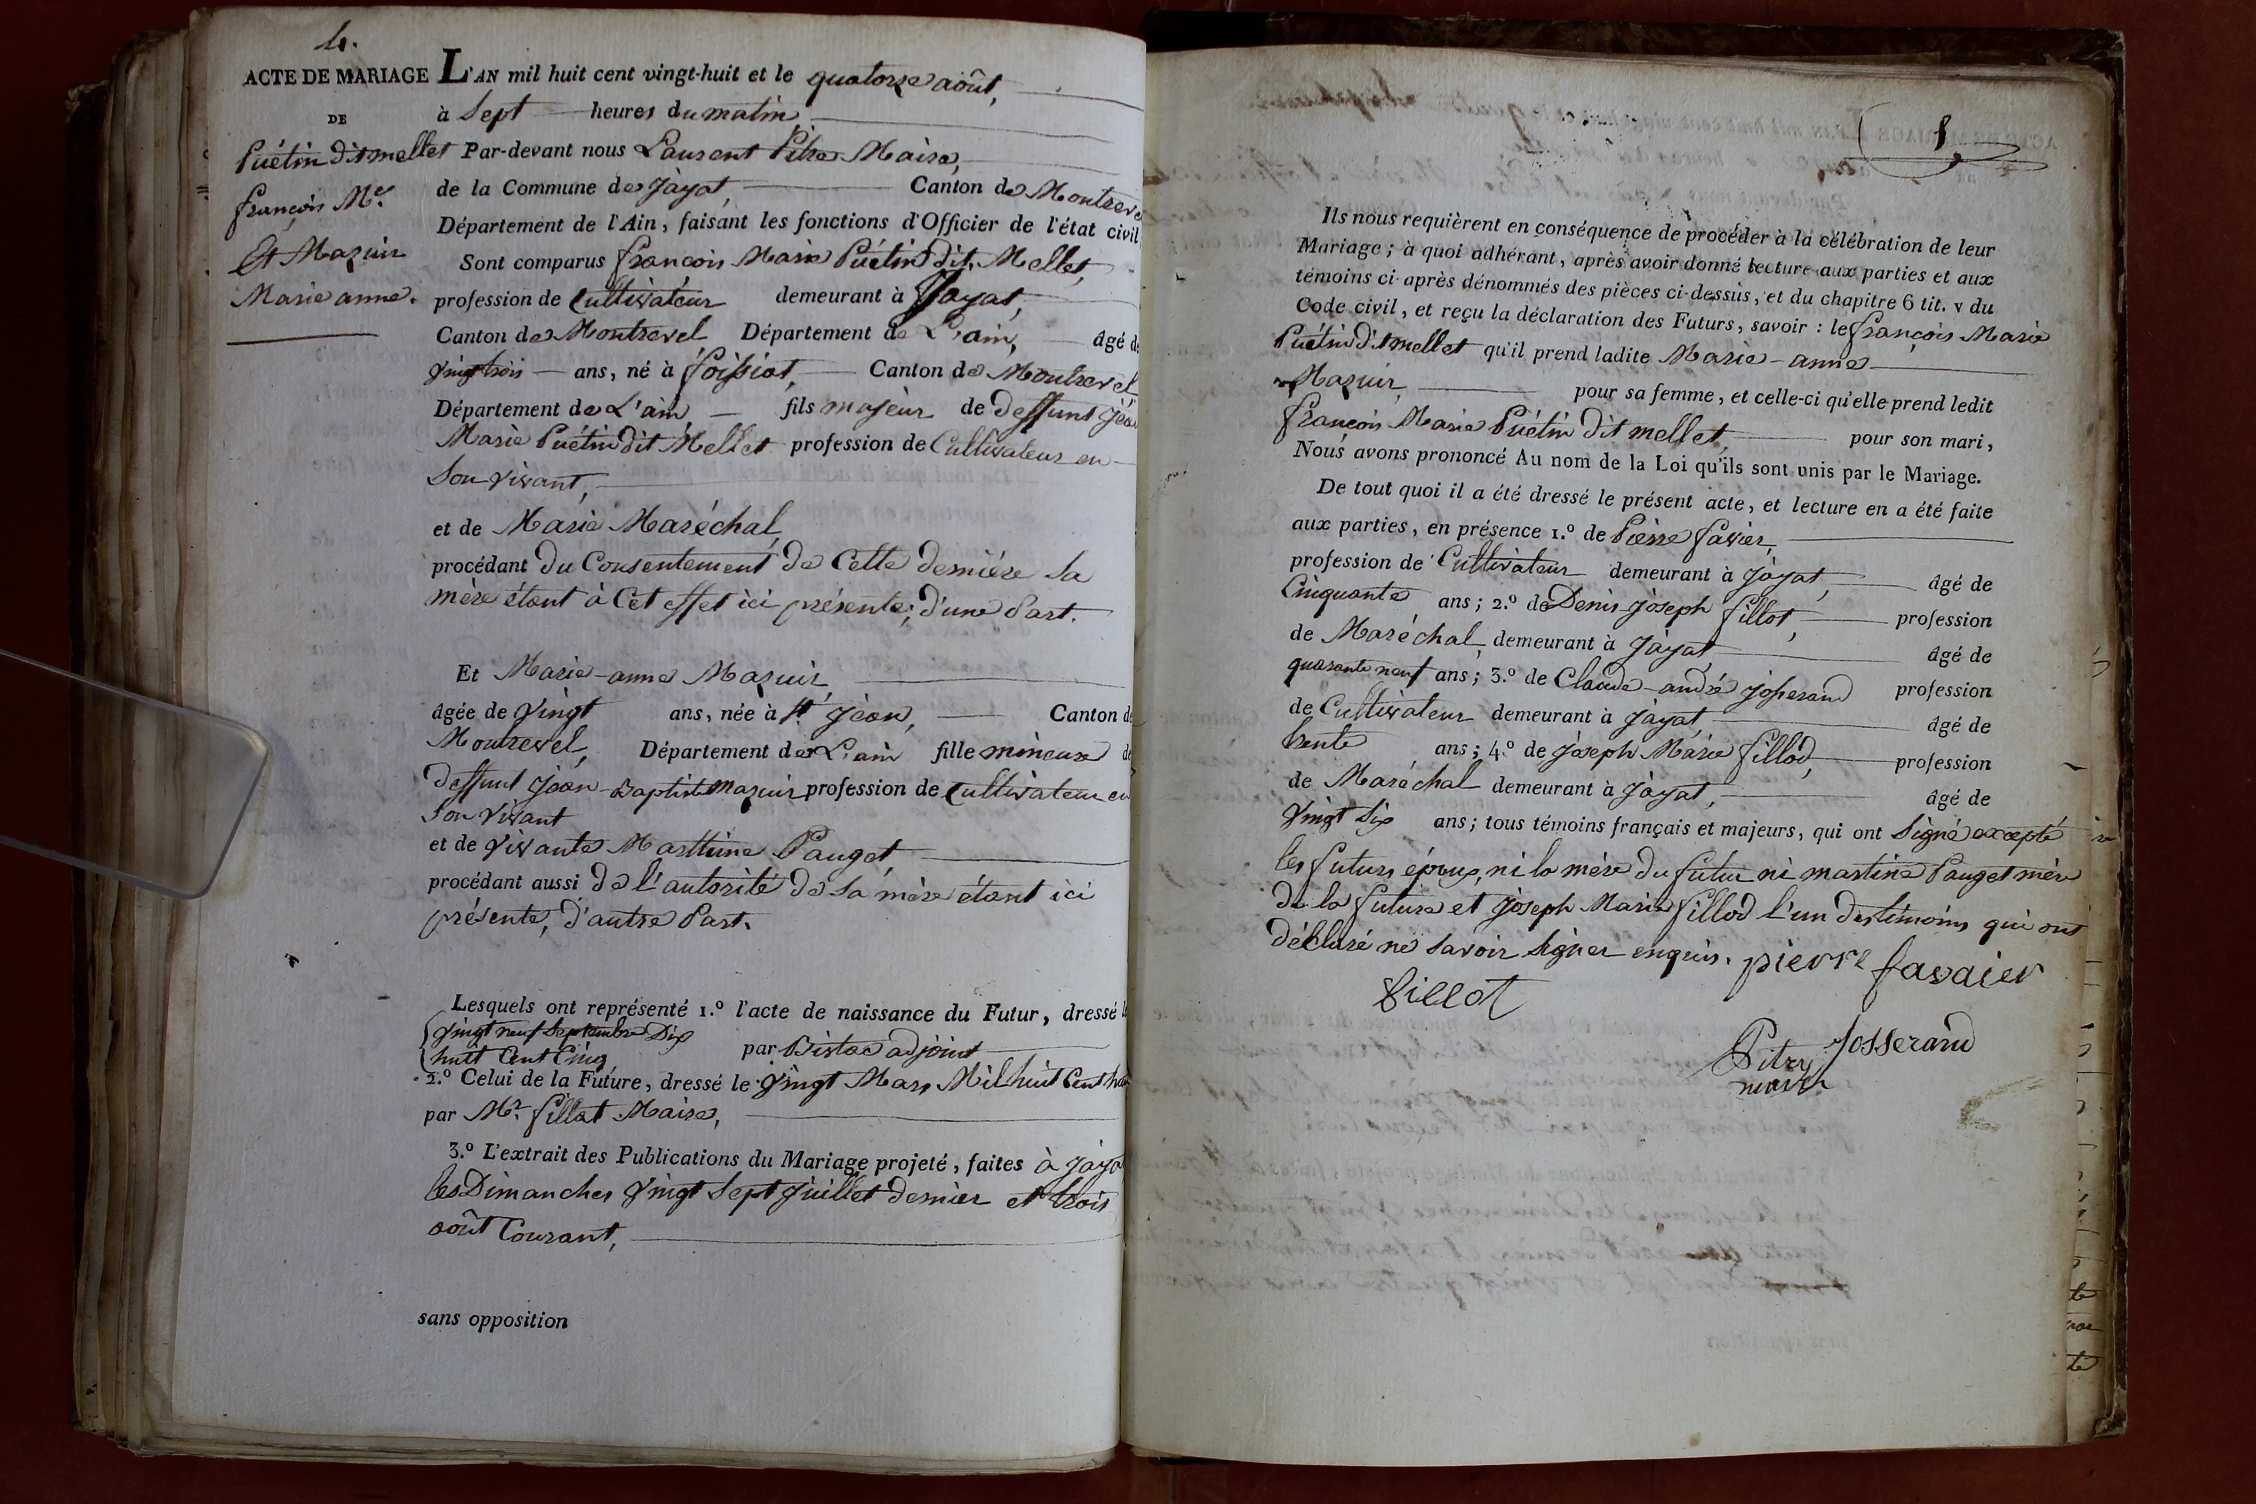 4.
ACTE DE MARIAGE
DE
Puétin dit mellet
françois Mie
Et Mazuir
Marie anne.
L'AN mil huit cent vingt-huit et le quatorze août,
à Sept heures du matin
Par-devant nous Laurent Pitre Maire,
de la Commune de Jayat, Canton de Montreve
Département de l'Ain, faisant les fonctions d'Officier de l'état civil
Sont comparus françois Marie Puétin dit Mellet,
profession de Cultivateur demeurant à Jayat,
Canton de Montrevel Département de L'ain, âgé de
vingt trois ans, né à foissiat, Canton de Montrevel
Département de L'ain fils majeur de deffunt Jean
Marie Puétin dit Mellet profession de Cultivateur en
Son vivant,
et de Marie Maréchal,
procédant du Consentement de Cette dernière Sa
mère étant à Cet effet ici présente; d'une Part.
Et Marie-anne Mazuir
âgée de vingt ans, née à St Jean, Canton de
Montrevel, Département de L'ain fille mineure de
deffunt Jean-Baptiste mazuir profession de Cultivateur en
Son vivant
et de vivante Marttine Pauget
procédant aussi de l'autorité de Sa mère étant ici
présente, d'autre Part.
Lesquels ont représenté 1.º l'acte de naissance du Futur, dressé le
vingt neuf Septembre Dix
huit Cent Cinq par adjoint
2.º Celui de la Future, dressé le vingt Mars Mil huit Cent huit
par Mr. fillot Maire,
3.º L'extrait des Publications du Mariage projeté, faites à Jaya
les Dimanches vingt Sept Juillet dernier et trois
août Courant,
sans opposition
5
Ils nous requièrent en conséquence de procéder à la célébration de leur
Mariage; à quoi adhérant, après avoir donné lecture aux parties et aux
témoins ci-après dénommés des pièces ci-dessus, et du chapitre 6 tit. v du
Code civil, et reçu la déclaration des Futurs, savoir : le françois Marie
Puétin dit mellet qu'il prend ladite Marie-anne
Mazuir, pour sa femme, et celle-ci qu'elle prend ledit
françois Marie Puétin dit mellet, pour son mari,
Nous avons prononcé Au nom de la Loi qu'ils sont unis par le Mariage.
De tout quoi il a été dressé le présent acte, et lecture en a été faite
aux parties, en présence 1.º de Pierre favier,
profession de Cultivateur demeurant à Jayat, âgé de
Cinquante ans; 2.º de Denis Joseph fillot, profession
de Maréchal, demeurant à Jayat âgé de
quarante neuf ans; 3.º de Claude-andré joserand profession
de Cultivateur demeurant à Jayat, âgé de
trente ans; 4.º de Joseph Marie fillod, profession
de Maréchal demeurant à Jayat, âgé de
vingt Six ans; tous témoins français et majeurs, qui ont Signé excepté
les futurs époux, ni la mère du futur ni martine Pauget mère
de la future et Joseph Marie fillod l'un des témoins qui ont
déclaré ne savoir Signer enquis. pierre favaier
fillot
Josserand
Pitre
maire